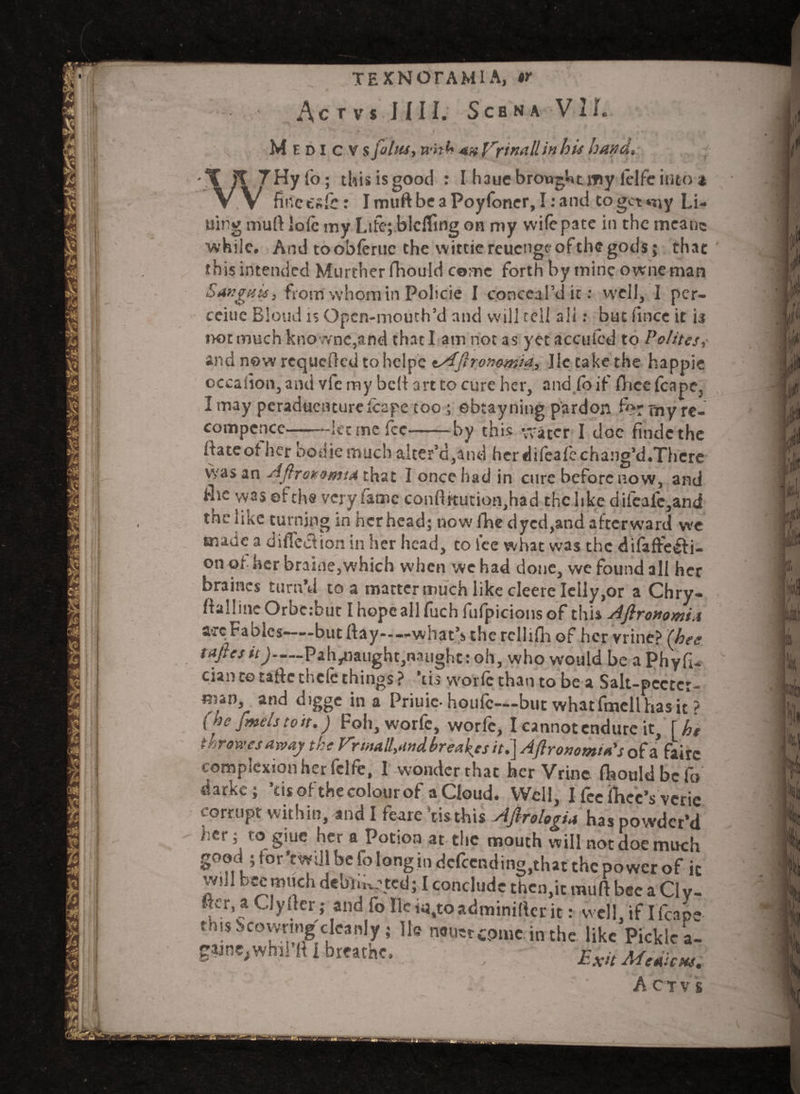 ΤΕΧΝΟΓΑΜΙΑ, or
Actvs IIII. Scena VII.
Medicvs solus, with an Vrinall in his hand.
WHy so; this is good : I haue brought my selfe into a
fine case : I must be a Poysoner, I : and to get my Li-
uing must lose my Life; blessing on my wise pate in the meane
while. And to obserue the wittie reuenge of the gods; that
this intended Murther should come forth by mine owne man
Sanguis, from whom in Policie I conceal'd it : well, I per-
ceiue Bloud is Open-mouth'd and will tell all : but since it is
not much knowne, and that I am not as yet accused to Polites,
and now requested to helpe Astronomia, Ile take the happie
occasion, and vse my best art to cure her, and so if shee scape,
I may peraduenture scape too; obtayning pardon for my re-
compence——let me see——by this water I doe finde the
state of her bodie much alter'd, and her disease chang'd. There
was an Astronomia that I once had in cure before now, and
she was of the very same constitution, had the like disease, and
the like turning in her head; now she dyed, and afterward we
made a dissection in her head, to see what was the disaffecti-
on of her braine, which when we had done, we found all her
braines turn'd to a matter much like cleere Ielly, or a Chry-
stalline Orbe: but I hope all such suspicions of this Astronomia
are Fables----but stay----what's the rellish of her vrine? (hee
tastes it)----Pah, naught, naught: oh, who would be a Physi-
cian to taste these things? 'tis worse than to be a Salt-peeter-
man, and digge in a Priuie-house---but what smell has it ?
(he smels to it.) Foh, worse, worse, I cannot endure it, [he
throwes away the Vrinall, and breakes it.] Astronomia's of a faire
complexion her selfe, I wonder that her Vrine should be so
darke; 'tis of the colour of a Cloud. Well, I see shee's verie
corrupt within, and I feare 'tis this Astrologia has powder'd
her; to giue her a Potion at the mouth will not doe much
good; for 'twill be so long in descending, that the power of it
will bee much debilitated; I conclude then, it must bee a Cly-
ster, a Clyster; and so Ile in, to administer it : well, if I scape
this Scowring cleanly; Ile neuer come in the like Pickle a-
gaine, whil'st I breathe. Exit Medicus.
Actvs